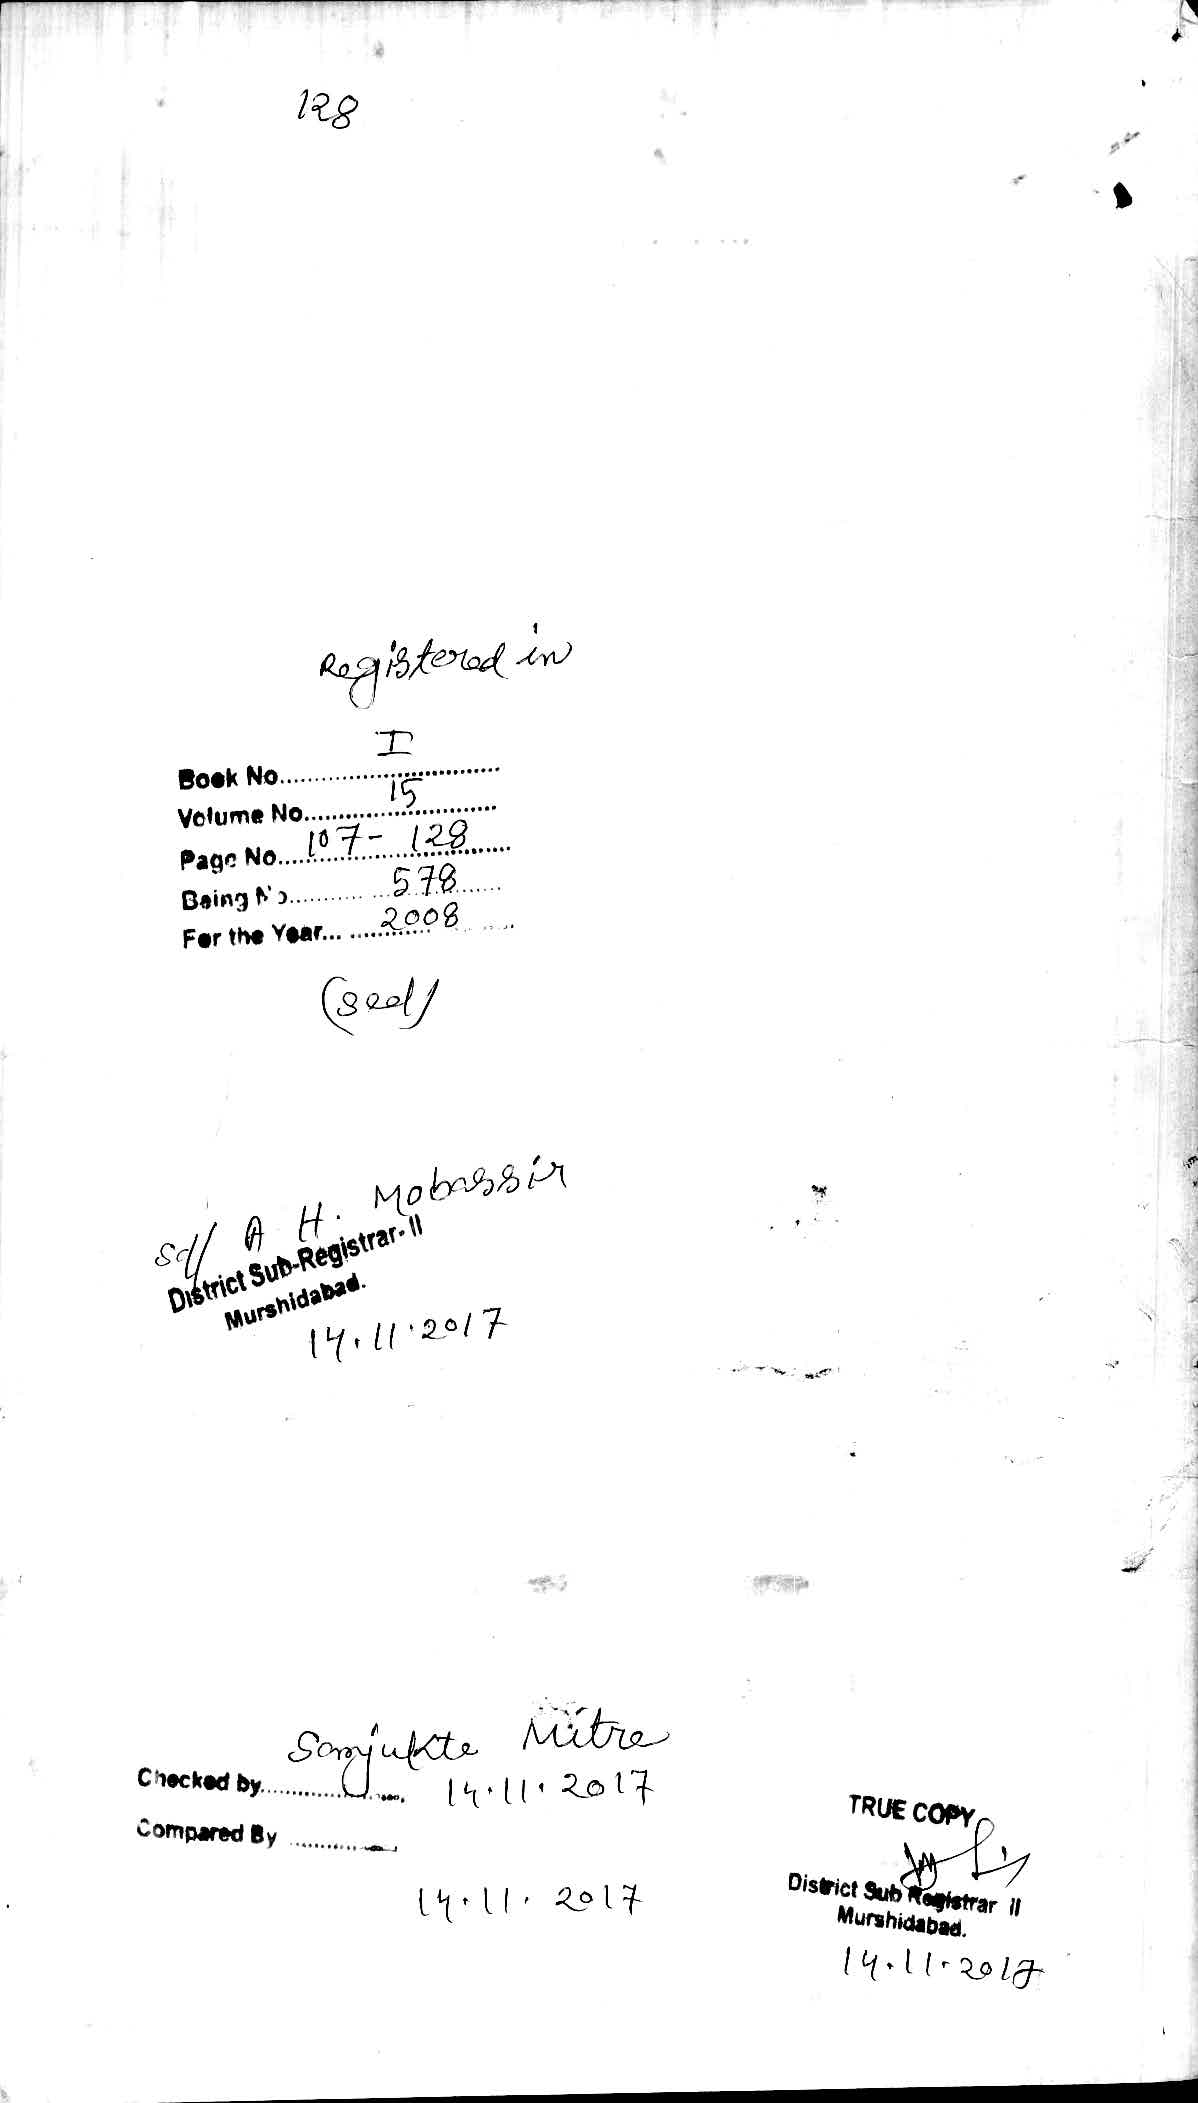 128
Registered in
Book No. I
Volume No. 15
Page No. 107 - 128
Being No. 578
For the Year 2008
(seal)
Sd/ A H. Mobassir
District Sub-Registrar-II
Murshidabad.
14.11.2017
Sanjukta Mitra
Checked by 14.11.2017
Compared By
14.11.2017
TRUE COPY
District Sub Registrar II
Murshidabad.
14.11.2017